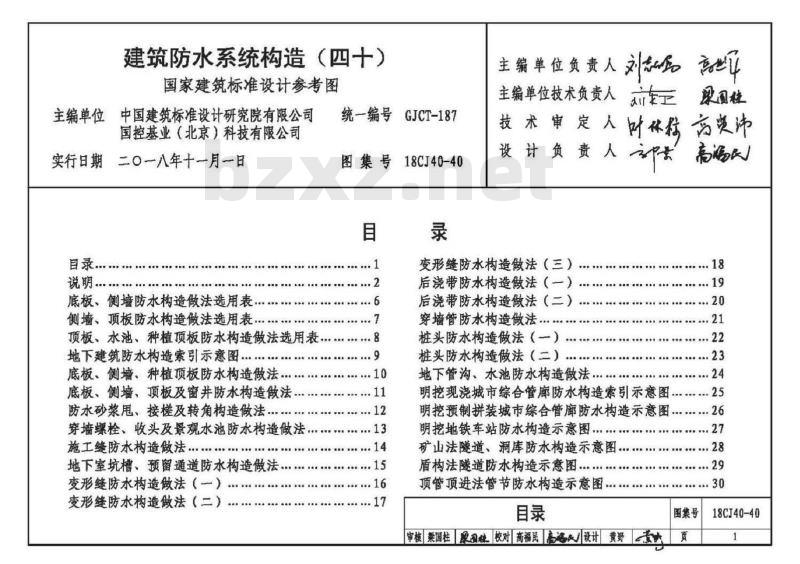 建筑防水系统构造（四十）
国家建筑标准设计参考图
主编单位 中国建筑标准设计研究院有限公司 统一编号 GJCT-187
国控基业（北京）科技有限公司
实行日期 二〇一八年十一月一日 图集号 18CJ40-40
主编单位负责人
主编单位技术负责人
技术审定人
设计负责人
bzxz.net
目录
目录……1
说明……2
底板、侧墙防水构造做法选用表……6
侧墙、顶板防水构造做法选用表……7
顶板、水池、种植顶板防水构造做法选用表……8
地下建筑防水构造索引示意图……9
底板、侧墙、种植顶板防水构造做法……10
底板、侧墙、顶板及窗井防水构造做法……11
防水砂浆甩、接槎及转角构造做法……12
穿墙螺栓、收头及景观水池防水构造做法……13
施工缝防水构造做法……14
地下室坑槽、预留通道防水构造做法……15
变形缝防水构造做法（一）……16
变形缝防水构造做法（二）……17
变形缝防水构造做法（三）……18
后浇带防水构造做法（一）……19
后浇带防水构造做法（二）……20
穿墙管防水构造做法……21
桩头防水构造做法（一）……22
桩头防水构造做法（二）……23
地下管沟、水池防水构造做法……24
明挖现浇城市综合管廊防水构造索引示意图……25
明挖预制拼装城市综合管廊防水构造示意图……26
明挖地铁车站防水构造示意图……27
矿山法隧道、洞库防水构造示意图……28
盾构法隧道防水构造示意图……29
顶管顶进法管节防水构造示意图……30
目录 图集号 18CJ40-40
审核 梁国柱 校对 高福民 设计 黄野 页 1